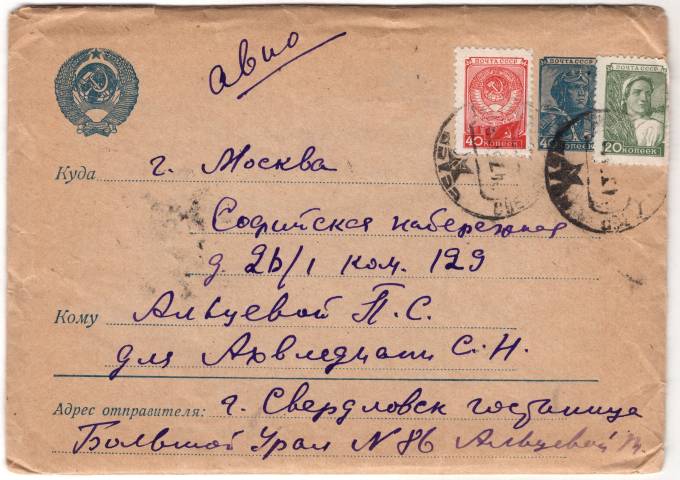 авио
ПОЧТА СССР
40 КОПЕЕК
ПОЧТА СССР
КОПЕЕК
ПОЧТА СССР
20 КОПЕЕК
Куда г. Москва
Софийская набережная
д. 26/1 ком. 129
Кому Альцевой П.С.
для С.Н.
Адрес отправителя: г. Свердловск гостиница
Большой Урал N 86 Альцевой П.